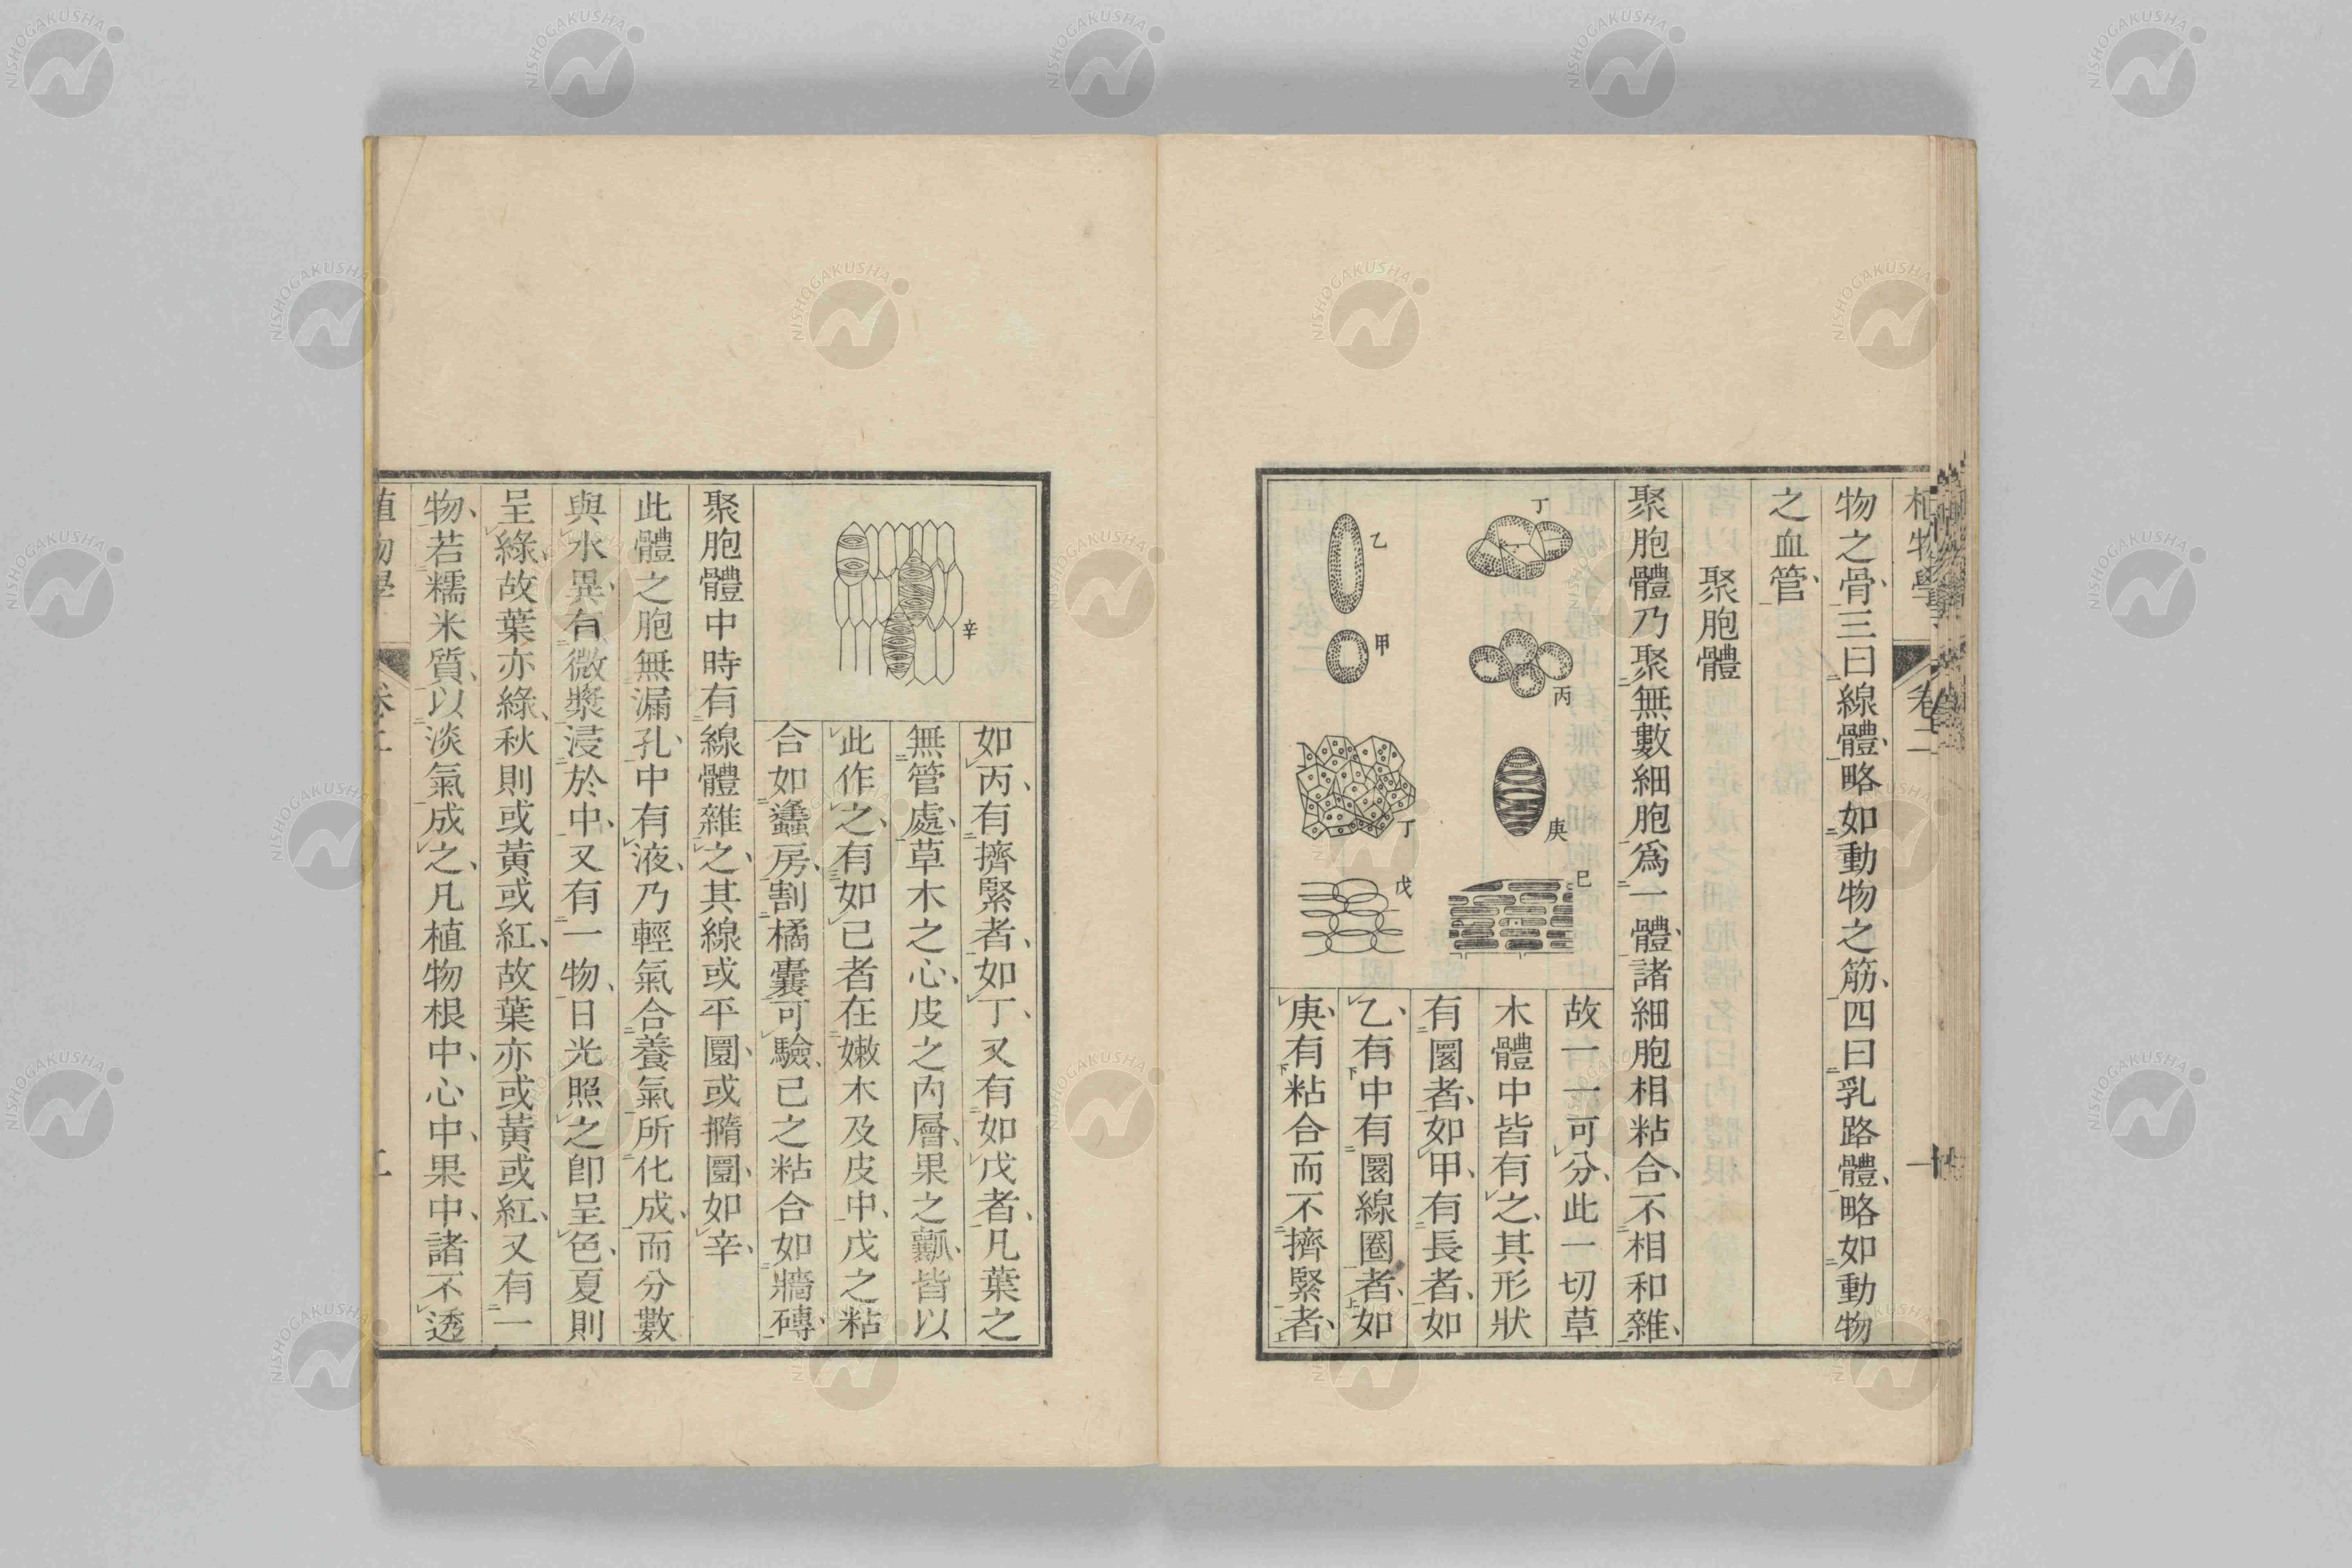 植物學 卷二
物之骨、三曰線體、略如動物之筋、四曰乳路體、略如動物
之血管、
聚胞體
聚胞體乃聚無數細胞爲一體、諸細胞相粘合、不相和雜、
丁
丙
庚
巳
乙
甲
丁
戊
故一一可分、此一切草
木體中皆有之、其形狀
有圜者、如甲、有長者、如
乙、有中有圜線圈者、如
庚、有粘合而不擠緊者、
如丙、有擠緊者、如丁、又有如戊者、凡葉之
無管處、草木之心、皮之內層、果之瓤、皆以
此作之、有如己者在嫩木及皮中、戊之粘
合如蠭房、割橘囊可驗、己之粘合如牆磚、
辛
聚胞體中時有線體雜之、其線或平圜、或撱圜、如辛、
此體之胞無漏孔、中有液、乃輕氣合養氣所化成、而分數
與水異、有微漿浸於中、又有一物、日光照之卽呈色、夏則
呈綠、故葉亦綠、秋則或黃或紅、故葉亦或黃或紅、又有一
物、若糯米質、以淡氣成之、凡植物根中、心中、果中、諸不透
植物學 卷二
NISHOGAKUSHA